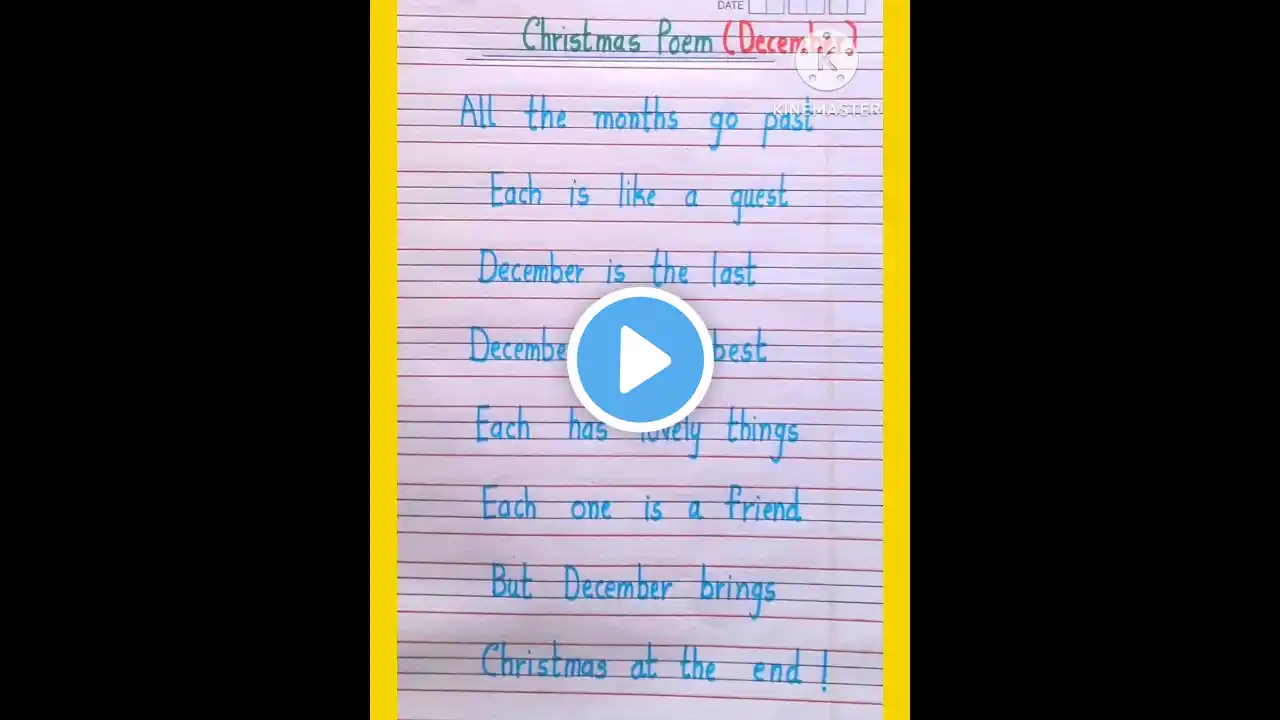 DATE
Christmas Poem (December)
KINEMASTER
All the months go past
Each is like a guest
December is the last
Decembe best
Each has lovely things
Each one is a friend
But December brings
Christmas at the end !